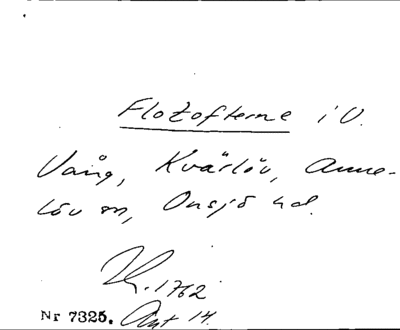 Flozofterne i V.
Vång, Kvärlöv, Anne-
löv sn, Onsjö hd.
1762
Nr 7325. Ant 14.